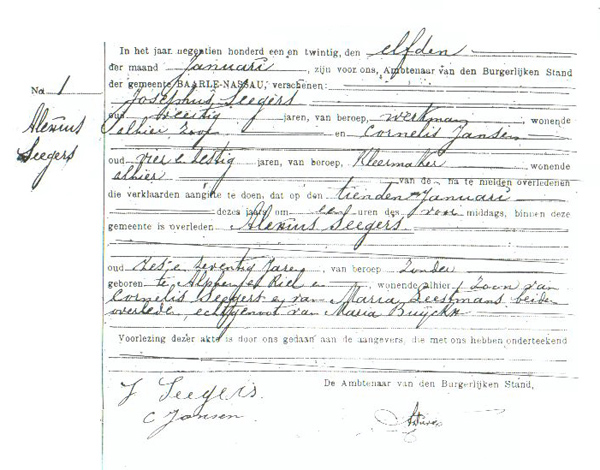 No 1
Alexius
Seegers
In het jaar negentien honderd een en twintig, den elfden
der maand Januari, zijn voor ons, Ambtenaar van den Burgerlijken Stand
der gemeente BAARLE-NASSAU, verschenen:
Josephus Seegers
oud veertig jaren, van beroep, werkman, wonende
alhier zoon en Cornelis Jansen
oud vier e sestig jaren, van beroep, Kleermaker wonende
alhier van de na te melden overledenen
die verklaarden aangifte te doen, dat op den tienden Januari
dezes jaars om een uren des voor middags, binnen deze
gemeente is overleden Alexius Seegers
oud zes e zeventig Jaren, van beroep Zonder
geboren te Alphen e Riel en wonende alhier, Zoon van
Cornelis Seegers e van Maria Leestmans beiden
overleden, echtgenoot van Maria Buyckx
Voorlezing dezer akte is door ons gedaan aan de aangevers, die met ons hebben onderteekend
De Ambtenaar van den Burgerlijken Stand,
J Seegers
C Jansen